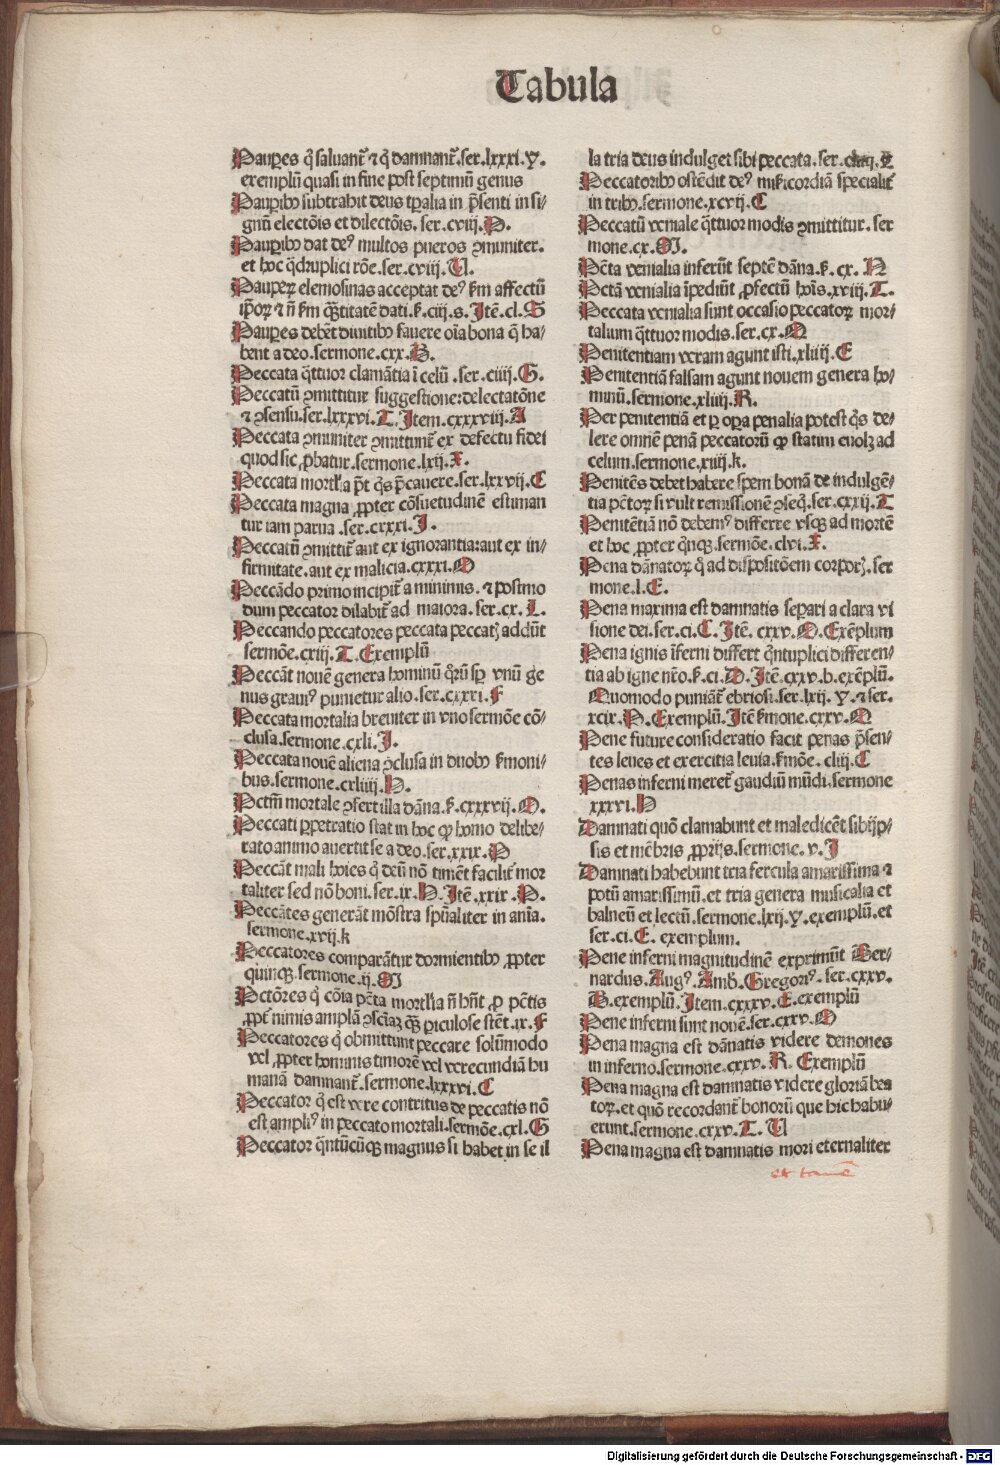 Tabula
Paup̲es q̇ saluant᷑ ⁊ q̇ damnant᷑.ser.lxxxi.Y.
exemplū quasi in fine post septimū genus
Paup̲ibꝰ subtrahit deus tp̲alia in p̄senti in si-
gnū electōis et dilectōis. ser.cviij.P.
Paup̲ibꝰ dat deꝰ multos pueros ꝯmuniter.
et hoc q̄druplici rōe.ser.cviij.U.
Paup̲eꝝ elemosinas acceptat deꝰ ẜm affectū
ip̄oꝝ ⁊ ñ ẜm q̄ntitatē dati.ẜ.ciij.s.Itē.cl.S
Paup̲es debēt diuitibꝰ fauere oīa bona q̄ ha-
bent a deo.sermone.cxx.B.
Peccata q̄ttuor clamātia ī celū .ser.ciiij.G.
Peccatū ꝯmittitur suggestione:delectatōne
⁊ ꝯsensu.ser.lxxxvi.T.Item.cxxxviij.A
Peccata ꝯmuniter ꝯmittunt᷑ ex defectu fidei
quod sic ꝓbatur.sermone.lxij.X.
Peccata mortl̄ia p̄t q̇s p̄cauere.ser.lxxvij.C
Peccata magna ꝓpter cōsuetudinē estiman
tur iam parua .ser.cxxxi.I.
Peccatū ꝯmittit᷑ aut ex ignorantia:aut ex in-
firmitate.aut ex malicia.cxxxi.O
Peccādo primo incipit᷑ a minimis. ⁊ postmo
dum peccator dilabit᷑ ad maiora.ser.cx.L.
Peccando peccatores peccata peccat̄ꝭ addūt
sermōe.cxiij.T.Exemplū
Peccāt nouē genera hominū q̄ꝝ sp̲ vnū ge
nus grauiꝰ punietur alio.ser.cxxxi.F
Peccata mortalia breuiter in vno sermōe cō-
clusa.sermone.cxli.I.
Peccata nouē aliena ꝯclusa in duobꝰ ẜmoni-
bus.sermone.cxliiij.H.
Pctm̄ mortale ꝯfert illa dāna.ẜ.cxxxvij.O.
Peccati ꝑpetratio stat in hoc ꝙ homo delibe-
rato animo auertit se a deo.ser.xxix.P
Peccāt mali hoīes q̇ deū nō timēt facilit᷑ mor
taliter sed nō boni.ser.ix.H.Itē.xxix.P.
Peccātes generāt mōstra spūaliter in anīa.
sermone.xvij.k
Peccatores comparātur dormientibꝰ ꝓpter
quinqꝫ.sermone.ij.M
Pctōres q̇ cōia pc̄ta mortl̄ia ñ hn̄t ꝓ pc̄tis
ꝓpt᷑ nimis amplā ꝯsciāꝫ q̄ꝫ ꝑiculose stēt.ix.F
Peccatores q̇ obmittunt peccare solūmodo
vel ꝓpter hominis timorē vel verecundiā hu
manā damnant᷑.sermone.lxxxvi.C
Peccator q̇ est vere contritus de peccatis nō
est ampliꝰ in peccato mortali.sermōe.cxl.G
Peccator q̄ntūcūqꝫ magnus si habet in se il
la tria deus indulget sibi peccata.ser.
Peccatoribꝰ ostēdit deꝰ mīẜicordiā specialit᷑
in tribꝰ.sermone.xcvij.C
Peccatū veniale q̄ttuor modis ꝯmittitur.ser
mone.cx.M.
Pc̄ta venialia inferūt septē dāna.ẜ.cx.N
Pctā venialia īpediūt ꝓfectū hoīs.xviij.T.
Peccata venialia sunt occasio peccatoꝝ mor-
talium q̄ttuor modis.ser.cx.Q
Penitentiam veram agunt isti.xliiij.E
Penitentiā falsam agunt nouem genera ho-
minū.sermone.xliiij.R.
Per penitentiā et ꝑ oꝑa penalia potest q̇s de-
lere omnē penā peccatorū ꝙ statim euolꝫ ad
celum.sermone.xiiij.k.
Penitēs debet habere spem bonā de indulgē-
tia pc̄toꝝ si vult remissionē ꝯseq̇.ser.cxxij.T
Penitētiā nō debemꝰ differre vsqꝫ ad mortē
et hoc ꝓpter q̇nqꝫ.sermōe.clvi.X.
Pena dānatoꝝ q̄ ad dispositōem corporꝭ.ser
mone.l.E.
Pena maxima est damnatis separi a clara vi
sione dei.ser.ci.C.Itē.cxxv.O.Exēplum
Pena ignis īferni differt q̇ntuplici differen-
tia ab igne nr̄o.ẜ.ci.D.Itē.cxxv.b.exēplū.
Quomodo puniāt᷑ ebriosi.ser.lxij.Y.⁊ ser.
xcix.P.Exemplū.Itē ẜmone.cxxv.Q
Pene future consideratio facit penas p̄sen-
tes leues et exercitia leuia.ẜmōe.cliij.C
Penas inferni meret᷑ gaudiū mūdi.sermone
xxxvi.H
Damnati quō clamabunt et maledicēt sibijp-
sis et mēbris ꝓprijs.sermone.v.I
Damnati habebunt tria fercula amarissima ⁊
potū amarissimū.et tria genera musicalia et
balneū et lectū.sermone.lxij.Y.exemplū.et
ser.ci.E. exemplum.
Pene inferni magnitudinē exprimūt Ber-
nardus.Augꝰ.Amb̄.Gregoriꝰ.ser.cxxv.
B.exemplū.Item.cxxv.E.exemplū
Pene inferni sunt nouē.ser.cxxv.O
Pena magna est dānatis videre demones
in inferno.sermone.cxxv.R. Exemplū
Pena magna est damnatis videre gloriā bea
toꝝ.et quō recordant᷑ bonorū que hic habu-
erunt.sermone.cxxv.T.U
Pena magna est damnatis mori eternaliter
Digitalisierung gefördert durch die Deutsche Forschungsgemeinschaft - DFG